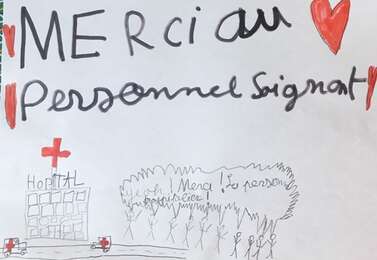 MERci au
Personnel Soignant
HOPITAL
! Merci ! Le person
hospitalier !